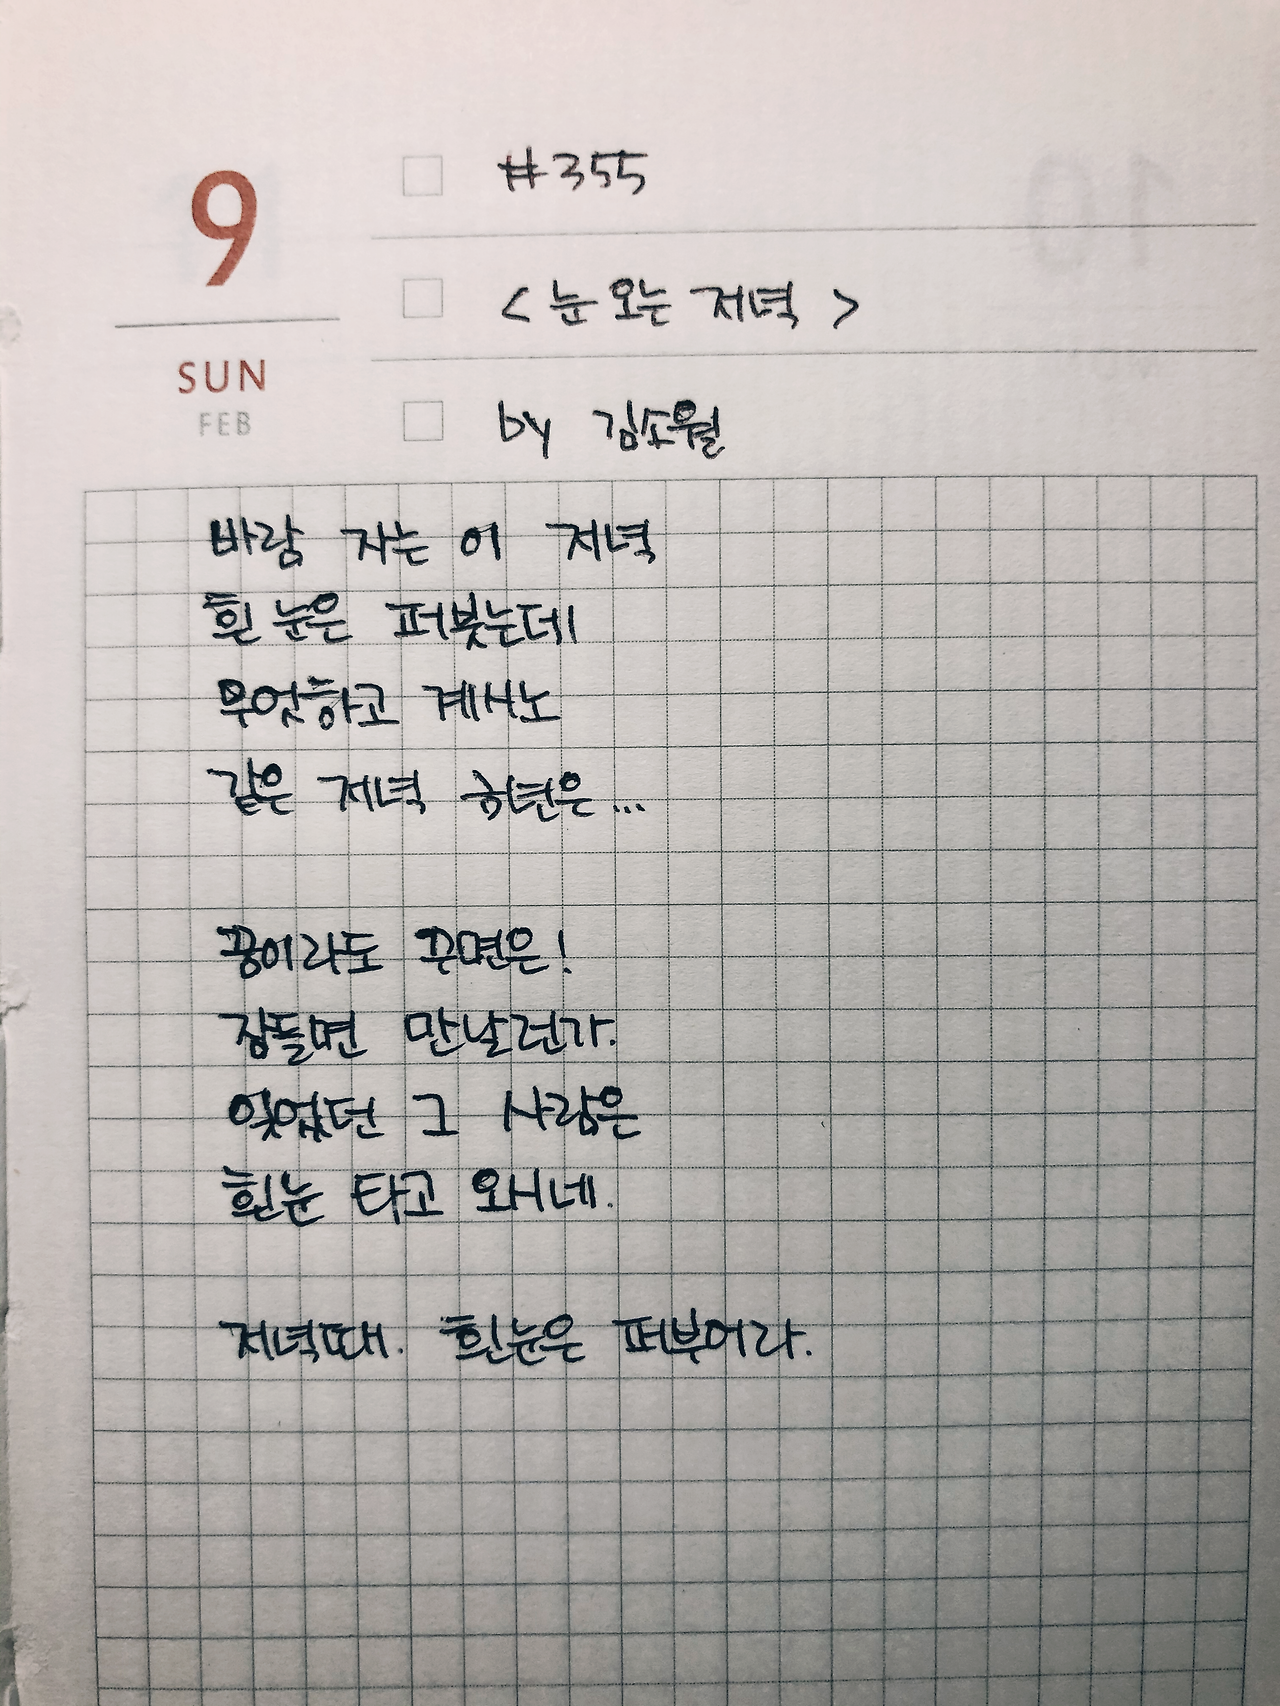 9
SUN
FEB
#355
< 눈 오는 저녁 >
by 김소월
바람 자는 이 저녁
흰 눈은 퍼붓는데
무엇하고 계시노
같은 저녁 금년은...
꿈이라도 꾸면은!
잠들면 만날런가.
잊었던 그 사람은
흰눈 타고 오시네.
저녁때. 흰눈은 퍼부어라.